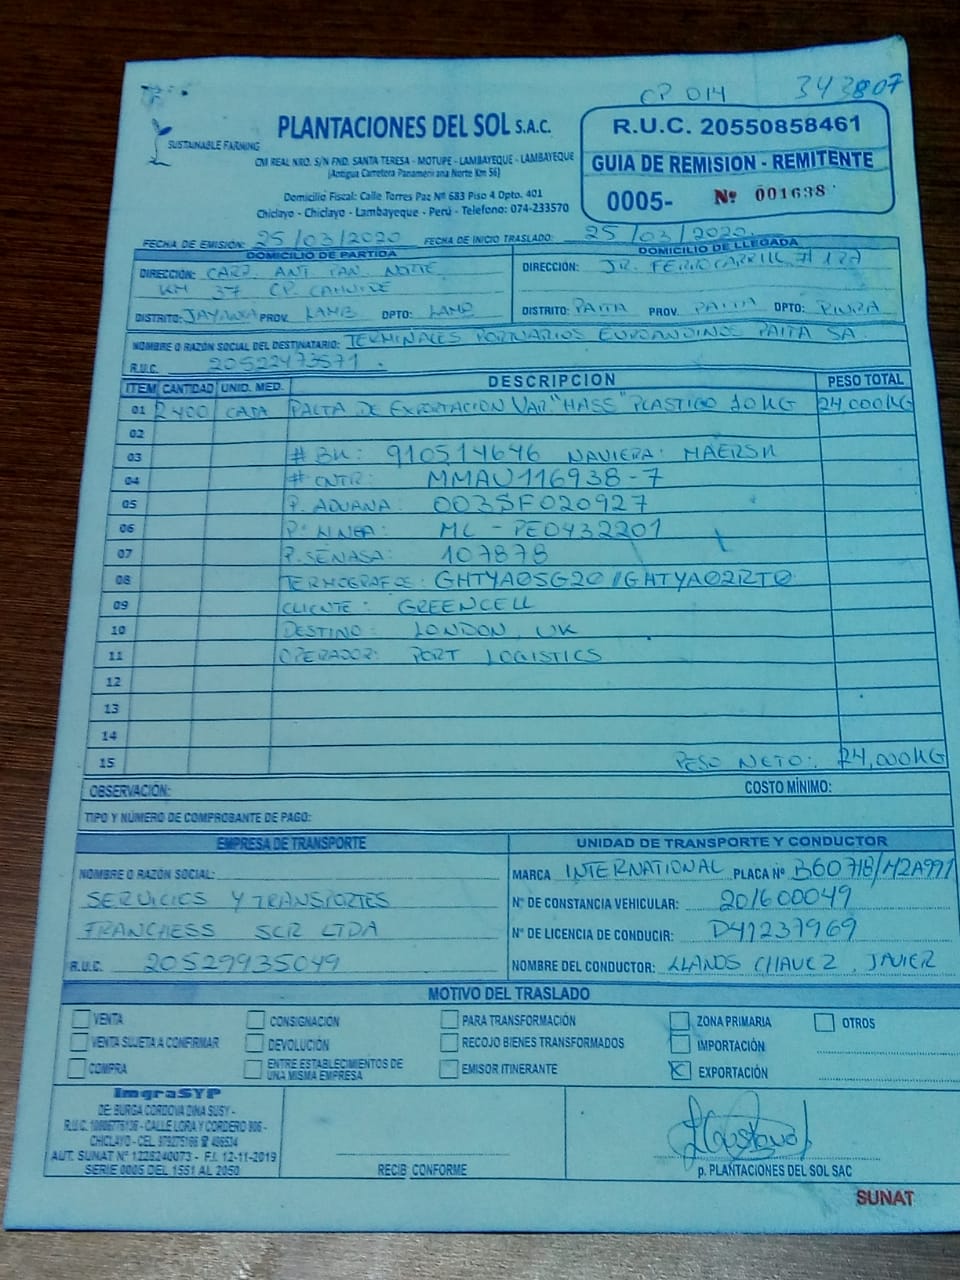 CP 014 343807
SUSTAINABLE FARMING
PLANTACIONES DEL SOL S.A.C.
CM REAL NRO. S/N FND. SANTA TERESA - MOTUPE - LAMBAYEQUE - LAMBAYEQUE
(Antigua Carretera Panamericana Norte Km 56)
Domicilio Fiscal: Calle Torres Paz Nº 683 Piso 4 Dpto. 401
Chiclayo - Chiclayo - Lambayeque - Perú - Telefono: 074-233570
R.U.C. 20550858461
GUIA DE REMISION - REMITENTE
0005- Nº 001638
FECHA DE EMISIÓN: 25/03/2020 FECHA DE INICIO TRASLADO: 25/03/2020
DOMICILIO DE PARTIDA
DIRECCIÓN: CARR. ANT. PAN. NORTE
KM 37 CP.
DISTRITO: JAYANCA PROV. LAMB DPTO: LAMB
DOMICILIO DE LLEGADA
DIRECCIÓN: JR. FERROCARRIL #
DISTRITO: PAITA PROV. PAITA DPTO: PIURA
NOMBRE O RAZÓN SOCIAL DEL DESTINATARIO: TERMINALES PORTUARIOS EUROANDINOS PAITA SA.
R.U.C. 20522473571.
ITEM CANTIDAD UNID. MED. DESCRIPCION PESO TOTAL
01 2400 CAJA PALTA DE EXPORTACION VAR. "HASS" PLASTICO 10 KG 24,000KG
02
03 # BK: 910514646 NAVIERA: MAERSK
04 # CNTR: MMAU116938-7
05 P. ADUANA: 003SF020927
06 P. LINEA: ML - PE0432201
07 P. SENASA: 107878
08 TERMOGRAFOS: GHTYA05G20 / GHTYA02RT0
09 CLIENTE: GREENCELL
10 DESTINO: LONDON, UK
11 OPERADOR: PORT LOGISTICS
12
13
14
15 PESO NETO: 24,000KG
OBSERVACIÓN: COSTO MÍNIMO:
TIPO Y NÚMERO DE COMPROBANTE DE PAGO:
EMPRESA DE TRANSPORTE
NOMBRE O RAZÓN SOCIAL:
SERVICIOS Y TRANSPORTES
FRANCHESS SCR LTDA
R.U.C. 20529935049
UNIDAD DE TRANSPORTE Y CONDUCTOR
MARCA INTERNATIONAL PLACA Nº B6O718/M2A991
Nº DE CONSTANCIA VEHICULAR: 201600049
Nº DE LICENCIA DE CONDUCIR: D41237969
NOMBRE DEL CONDUCTOR: LLANOS CHAVEZ, JAVIER
MOTIVO DEL TRASLADO
VENTA CONSIGNACIÓN PARA TRANSFORMACIÓN ZONA PRIMARIA OTROS
VENTA SUJETA A CONFIRMAR DEVOLUCIÓN RECOJO BIENES TRANSFORMADOS IMPORTACIÓN
COMPRA ENTRE ESTABLECIMIENTOS DE EMISOR ITINERANTE X EXPORTACIÓN
UNA MISMA EMPRESA
ImgraSYP
DE: BURGA CORDOVA DINA SUSY -
R.U.C. 10806775136 - CALLE LORA Y CORDERO 806 -
CHICLAYO - CEL. 979275166
AUT. SUNAT Nº 1228240073 - F.I. 12-11-2019
SERIE 0005 DEL 1551 AL 2050
RECIBÍ CONFORME
p. PLANTACIONES DEL SOL SAC
SUNAT